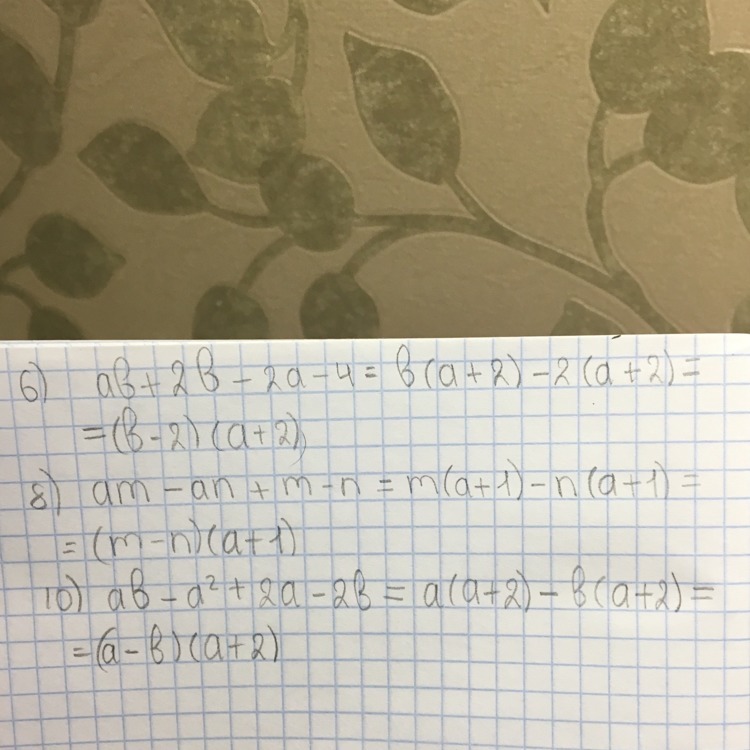 6) ab + 2b - 2a - 4 = b(a + 2) - 2(a + 2) =
= (b - 2)(a + 2)
8) am - an + m - n = m(a + 1) - n(a + 1) =
= (m - n)(a + 1)
10) ab - a² + 2a - 2b = a(a + 2) - b(a + 2) =
= (a - b)(a + 2)